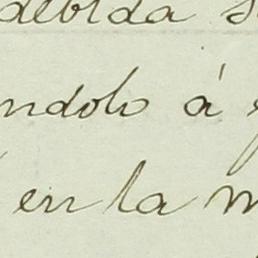 debida s
ndolo á
en la m